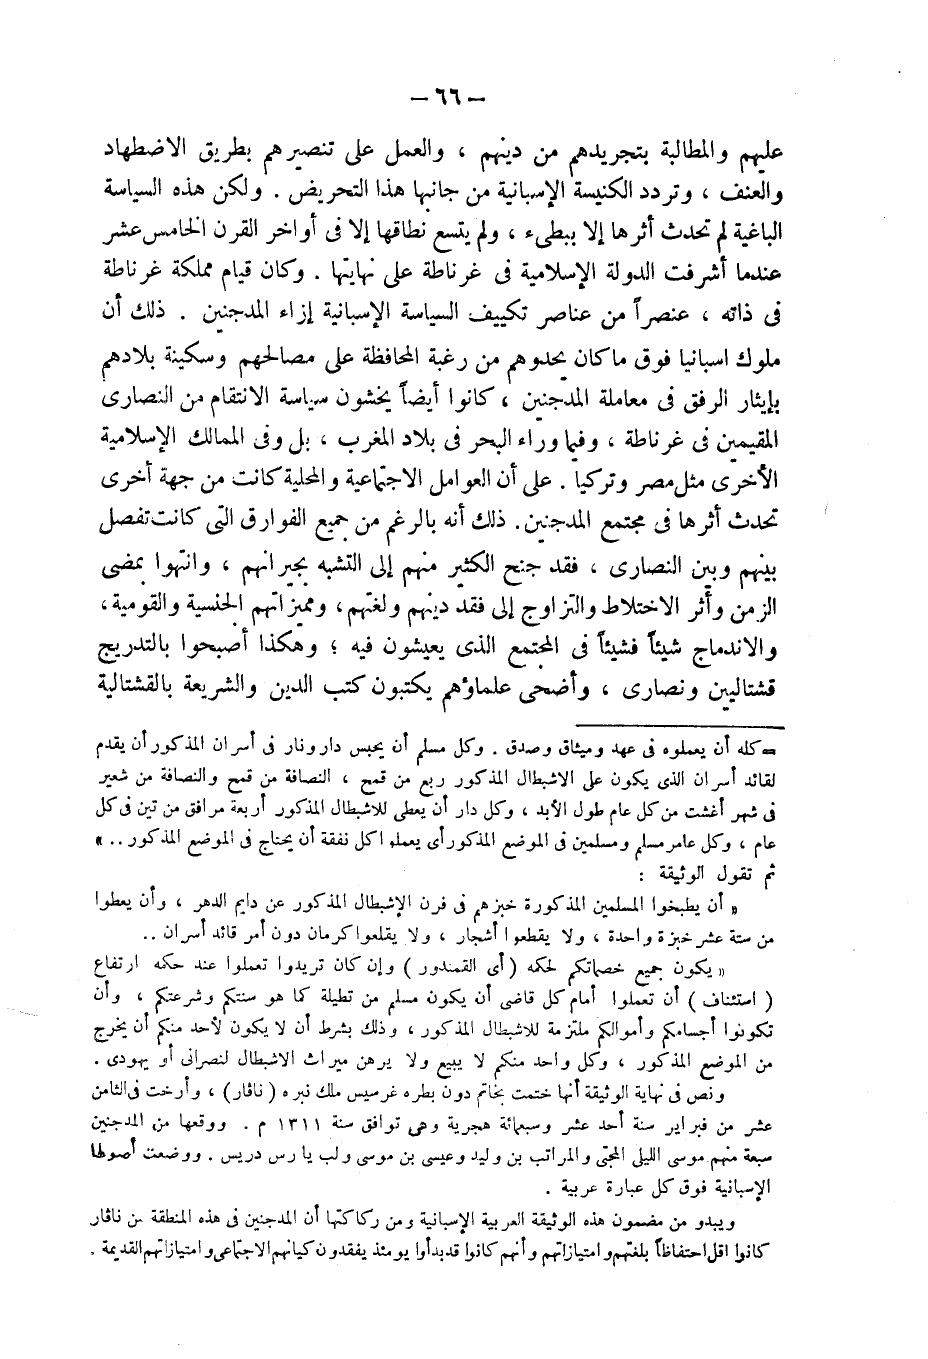 — ٦٦ —
عليهم والمطالبة بتجريدهم من دينهم ، والعمل على تنصيرهم بطريق الاضطهاد
والعنف ، وتردد الكنيسة الإسبانية من جانبها هذا التحريض . ولكن هذه السياسة
الباغية لم تحدث أثرها إلا ببطىء ، ولم يتسع نطاقها إلا فى أواخر القرن الخامس عشر
عندما أشرفت الدولة الإسلامية فى غرناطة على نهايتها . وكان قيام مملكة غرناطة
فى ذاته ، عنصراً من عناصر تكييف السياسة الإسبانية إزاء المدجنين . ذلك أن
ملوك اسبانيا فوق ما كان يحدوهم من رغبة المحافظة على مصالحهم وسكينة بلادهم
بإيثار الرفق فى معاملة المدجنين ، كانوا أيضاً يخشون سياسة الانتقام من النصارى
المقيمين فى غرناطة ، وفيما وراء البحر فى بلاد المغرب ، بل وفى الممالك الإسلامية
الأخرى مثل مصر وتركيا . على أن العوامل الاجتماعية والمحلية كانت من جهة أخرى
تحدث أثرها فى مجتمع المدجنين . ذلك أنه بالرغم من جميع الفوارق التى كانت تفصل
بينهم وبين النصارى ، فقد جنح الكثير منهم إلى التشبه بجيرانهم ، وانتهوا بمضى
الزمن وأثر الاختلاط والتزاوج إلى فقد دينهم ولغتهم ، ومميزاتهم الجنسية والقومية ،
والاندماج شيئاً فشيئاً فى المجتمع الذى يعيشون فيه ؛ وهكذا أصبحوا بالتدريج
قشتاليين ونصارى ، وأضحى علماؤهم يكتبون كتب الدين والشريعة بالقشتالية
= كله أن يعملوه فى عهد وميثاق وصدق . وكل مسلم أن يحبس دار ونار فى أسران المذكور أن يقدم
لقائد أسران الذى يكون على الاشبطال المذكور ربع من قمح ، النصافة من قمح والنصافة من شعير
فى شهر أغشت من كل عام طول الأبد ، وكل دار أن يعطى للاشبطال المذكور أربعة مرافق من تين فى كل
عام ، وكل عامر مسلم ومسلمين فى الموضع المذكور أى يعملوا كل نفقة أن يحتاج فى الموضع المذكور .. »
ثم تقول الوثيقة :
« أن يطبخوا المسلمين المذكورة خبزهم فى فرن الإشبطال المذكور عن دايم الدهر ، وأن يعطوا
من ستة عشر خبزة واحدة ، ولا يقطعوا أشجار ، ولا يقلعوا كرمان دون أمر قائد أسران ..
« يكون جميع خصماتكم لحكه ( أى القمندور ) وإن كان تريدوا تعملوا عند حكه ارتفاع
( استئناف ) أن تعملوا أمام كل قاضى أن يكون مسلم من تطيلة كما هو سنتكم وشرعتكم ، وأن
تكونوا أجسامكم وأموالكم ملتزمة للاشبطال المذكور ، وذلك بشرط أن لا يكون لأحد منكم أن يخرج
من الموضع المذكور ، وكل واحد منكم لا يبيع ولا يرهن ميراث الاشبطال لنصرانى أو يهودى .
ونص فى نهاية الوثيقة أنها ختمت بخاتم دون بطره غرسيس ملك نبره ( ناڤار ) ، وأرخت فى الثامن
عشر من فبراير سنة أحد عشر وسبعمائة هجرية وهى توافق سنة ١٣١١ م . ووقعها من المدجنين
سبعة منهم موسى الليلى المجتى والمراتب بن وليد وعيسى بن موسى ولب يارس دريس . ووضعت أصولها
الإسبانية فوق كل عبارة عربية .
ويبدو من مضمون هذه الوثيقة العربية الإسبانية ومن ركاكتها أن المدجنين فى هذه المنطقة من ناڤار
كانوا اقل احتفاظاً بلغتهم وامتيازاتهم وأنهم كانوا قد بدأوا يومئذ يفقدون كيانهم الاجتماعى وامتيازاتهم القديمة .